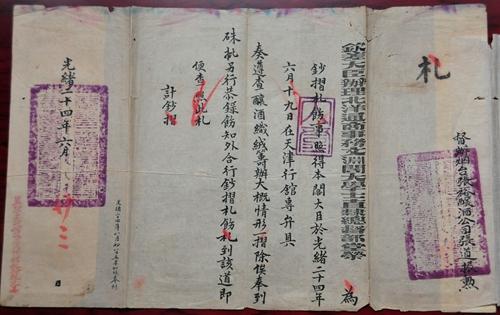 札
督辦烟台張裕釀酒公司張道振勲
欽差大臣辦理北洋通商事務文淵閣大學士直隸總督部堂榮 為
鈔摺札飭事照得本閣大臣於光緒二十四年
六月十九日在天津行館專弁具
奏遵查釀酒織絨籌辦大概情形一摺除俟奉到
硃批另行恭錄飭知外合行鈔摺札飭札到該道即
便查照此札
計鈔摺
光緒二十四年六月
日